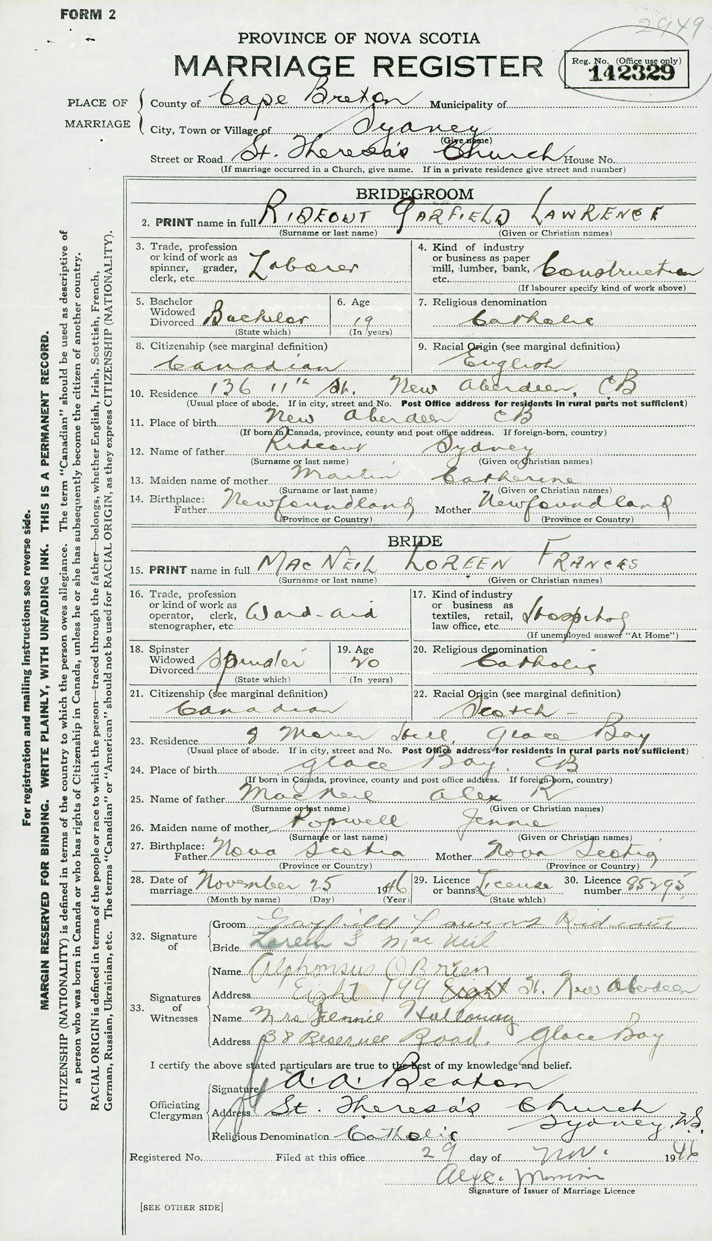 FORM 2
2949
PROVINCE OF NOVA SCOTIA
MARRIAGE REGISTER
Reg. No. (Office use only)
142329
PLACE OF MARRIAGE
County of Cape Breton Municipality of
City, Town or Village of Sydney
(Give name)
Street or Road St. Theresa's Church House No.
(If marriage occurred in a Church, give name. If in a private residence give street and number)
BRIDEGROOM
2. PRINT name in full RIDEOUT GARFIELD LAWRENCE
(Surname or last name) (Given or Christian names)
3. Trade, profession or kind of work as spinner, grader, clerk, etc. Laborer
4. Kind of industry or business as paper mill, lumber, bank, etc. Construction
(If labourer specify kind of work above)
5. Bachelor Widowed Divorced Bachelor
(State which)
6. Age 19
(In years)
7. Religious denomination Catholic
8. Citizenship (see marginal definition) Canadian
9. Racial Origin (see marginal definition) English
10. Residence 136 11th St. New Aberdeen, CB
(Usual place of abode. If in city, street and No. Post Office address for residents in rural parts not sufficient)
11. Place of birth New Aberdeen CB
(If born in Canada, province, county and post office address. If foreign-born, country)
12. Name of father Rideout Sydney
(Surname or last name) (Given or Christian names)
13. Maiden name of mother Martin Catherine
(Surname or last name) (Given or Christian names)
14. Birthplace: Father Newfoundland Mother Newfoundland
(Province or Country) (Province or Country)
BRIDE
15. PRINT name in full MAC NEIL LOREEN FRANCES
(Surname or last name) (Given or Christian names)
16. Trade, profession or kind of work as operator, clerk, stenographer, etc. Ward-aid
17. Kind of industry or business as textiles, retail, law office, etc. Hospital
(If unemployed answer "At Home")
18. Spinster Widowed Divorced Spinster
(State which)
19. Age 20
(In years)
20. Religious denomination Catholic
21. Citizenship (see marginal definition) Canadian
22. Racial Origin (see marginal definition) Scotch
23. Residence Hill, Glace Bay
(Usual place of abode. If in city, street and No. Post Office address for residents in rural parts not sufficient)
24. Place of birth Glace Bay. CB
(If born in Canada, province, county and post office address. If foreign-born, country)
25. Name of father MacNeil Alex R
(Surname or last name) (Given or Christian names)
26. Maiden name of mother Popwell Jennie
(Surname or last name) (Given or Christian names)
27. Birthplace: Father Nova Scotia Mother Nova Scotia
(Province or Country) (Province or Country)
28. Date of marriage November 25 1946
(Month by name) (Day) (Year)
29. Licence or banns License
(State which)
30. Licence number 85295
32. Signature of
Groom Garfield Rideout
Bride Loreen F MacNeil
33. Signatures of Witnesses
Name Alphonsus O'Brien
Address Eight 199 St. New Aberdeen
Name Mrs Jennie Holloway
Address 38 Reserve Road. Glace Bay
I certify the above stated particulars are true to the best of my knowledge and belief.
Officiating Clergyman
Signature A. A. Beaton
Address St. Theresa's Church Sydney, N.S.
Religious Denomination Catholic
Registered No. Filed at this office 29 day of Nov. 1946
Signature of Issuer of Marriage Licence
[SEE OTHER SIDE]
For registration and mailing instructions see reverse side.
MARGIN RESERVED FOR BINDING. WRITE PLAINLY, WITH UNFADING INK. THIS IS A PERMANENT RECORD.
CITIZENSHIP (NATIONALITY) is defined in terms of the country to which the person owes allegiance. The term "Canadian" should be used as descriptive of
a person who was born in Canada or who has rights of Citizenship in Canada, unless he or she has subsequently become the citizen of another country.
RACIAL ORIGIN is defined in terms of the people or race to which the person—traced through the father—belongs, whether English, Irish, Scottish, French,
German, Russian, Ukrainian, etc. The terms "Canadian" or "American" should not be used for RACIAL ORIGIN, as they express CITIZENSHIP (NATIONALITY).